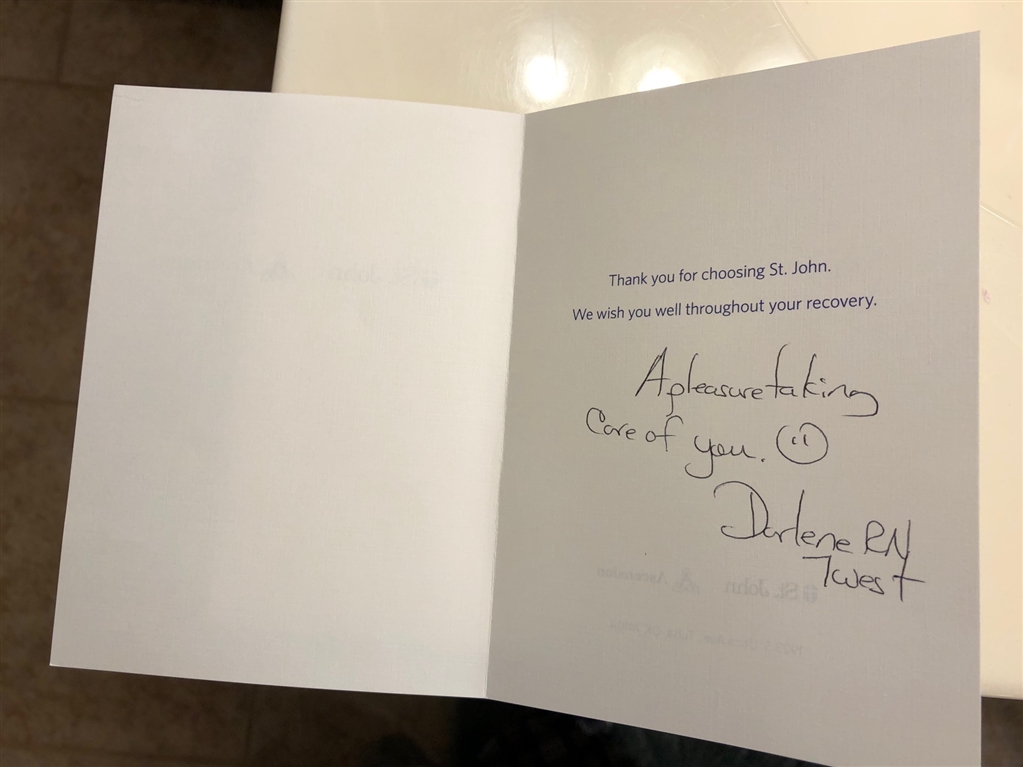 Thank you for choosing St. John.
We wish you well throughout your recovery.
A pleasure taking
Care of you.
Darlene RN
7 west
St. John Ascension